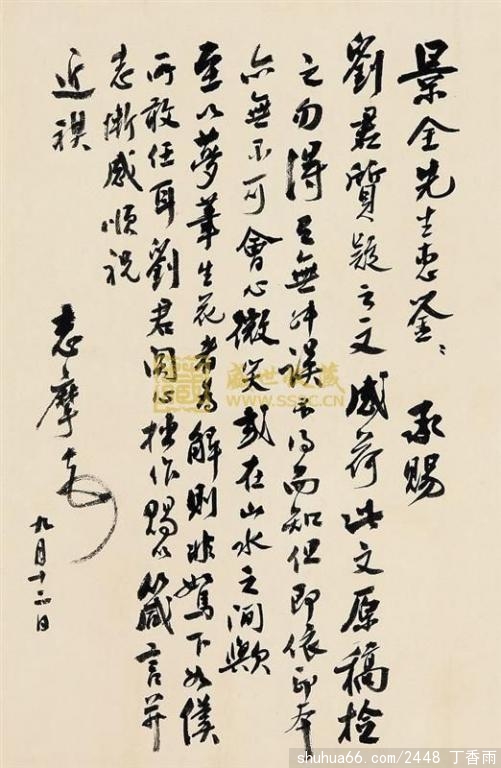 景全先生惠鉴：承赐
劉君質疑之文感荷此文原稿检
之勿得且無冲误不得而知但即依印本
亦無不可會心微笑或在山水之间歟
至以夢筆生花者为解则非駑下如僕
所敢任耳劉君関心拙作赐以箴言并
志慚感顺祝
近祺
志摩
九月十二日
盛世收藏
WWW.SSSC.CN
shuhua66.com/2448 丁香雨